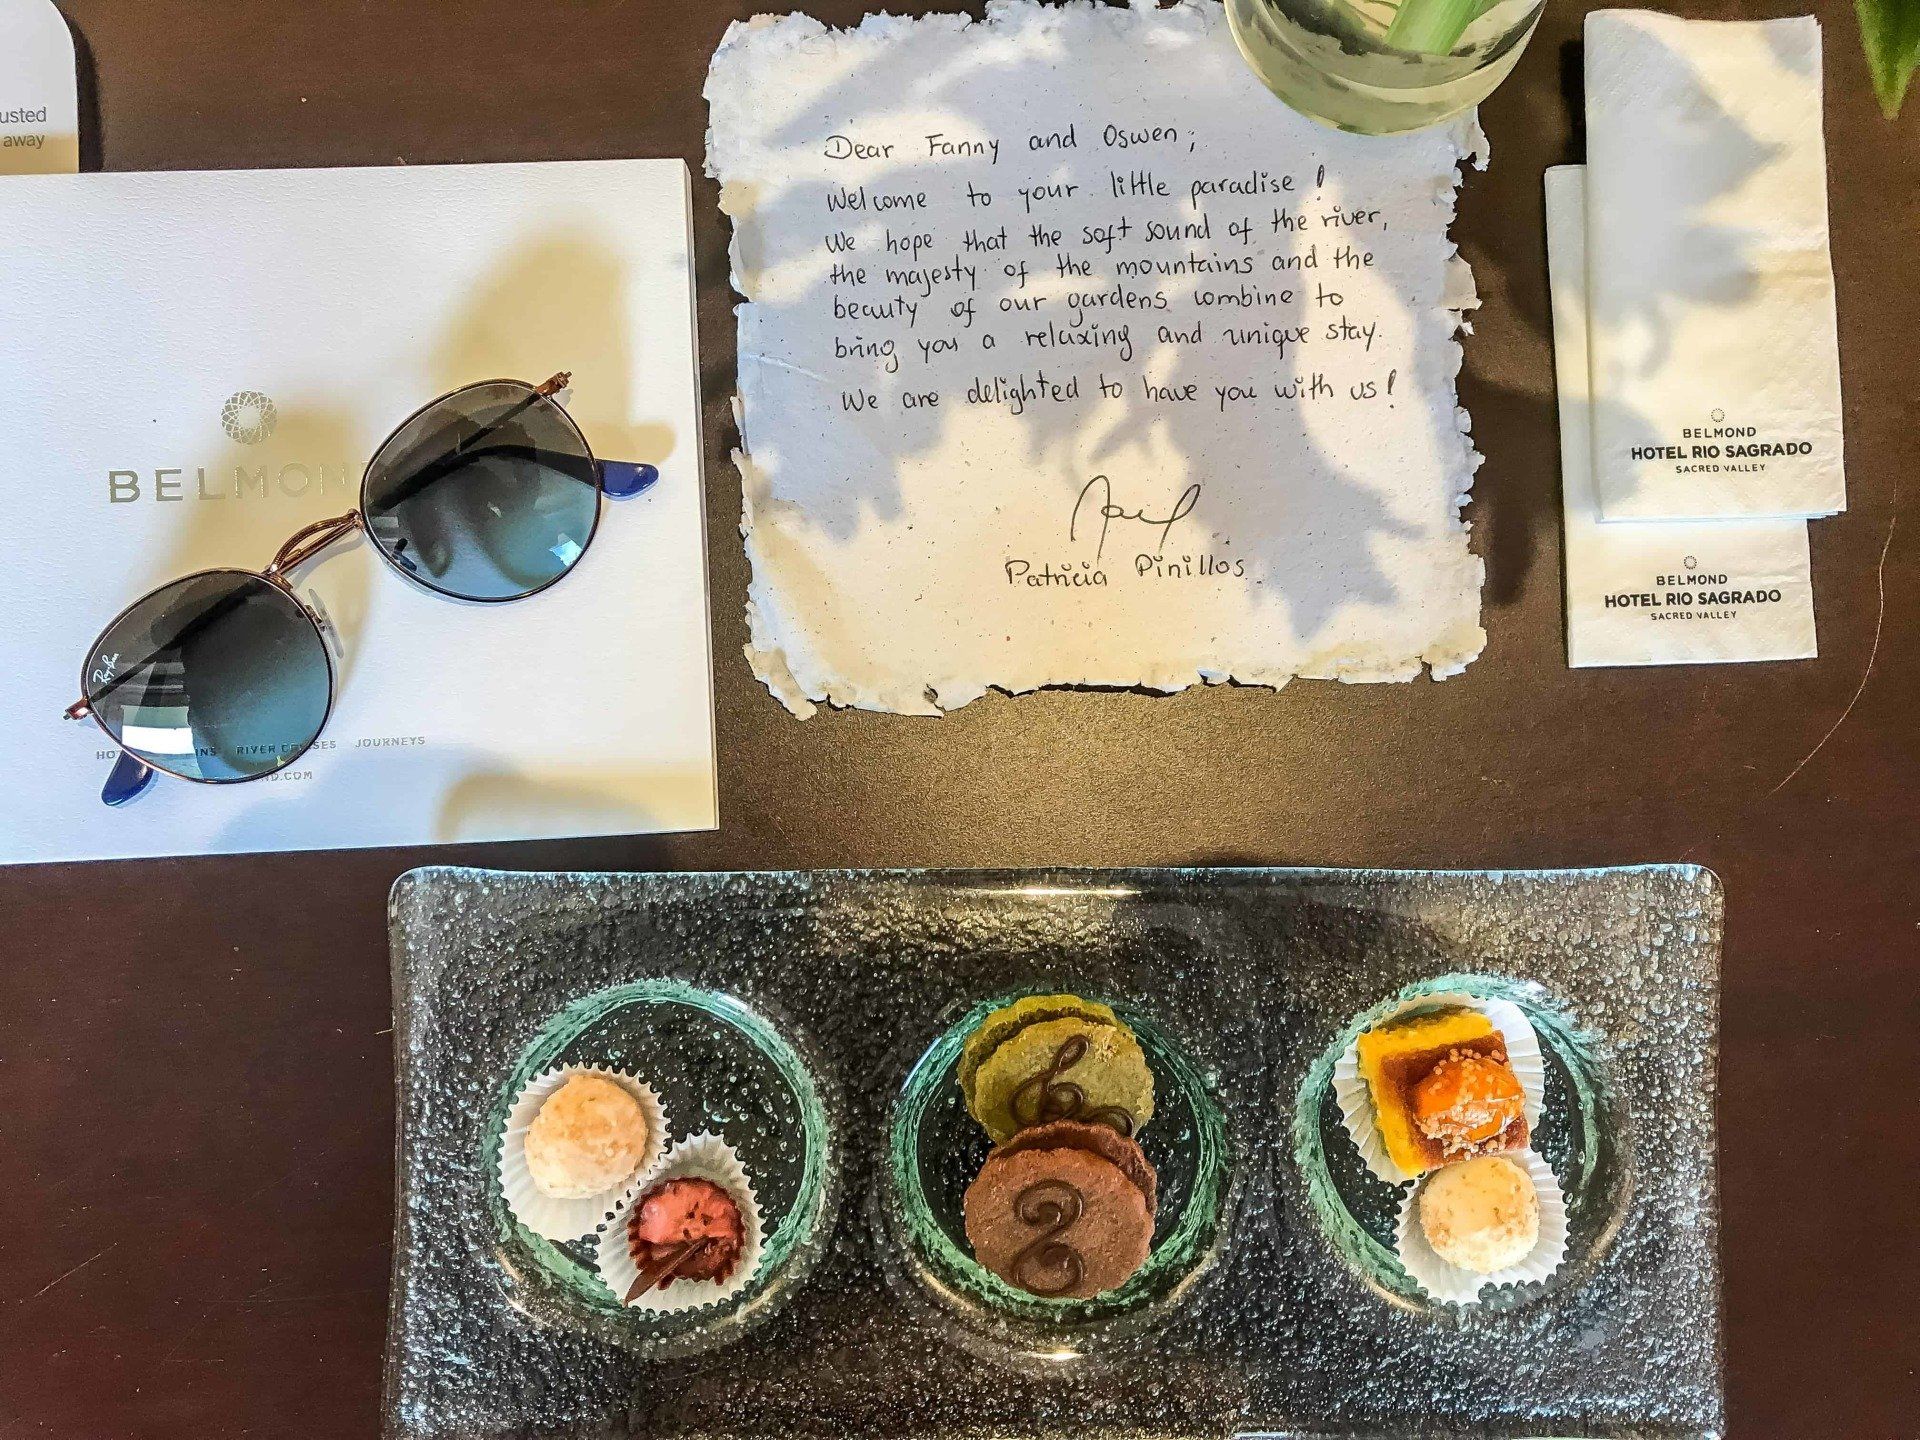 usted
away
BELMON
Ray-Ban
HO INS RIVER CRUISES JOURNEYS
ND.COM
Dear Fanny and Oswen;
Welcome to your little paradise!
We hope that the soft sound of the river,
the majesty of the mountains and the
beauty of our gardens combine to
bring you a relaxing and unique stay.
We are delighted to have you with us!
Patricia Pinillos
BELMOND
HOTEL RIO SAGRADO
SACRED VALLEY
BELMOND
HOTEL RIO SAGRADO
SACRED VALLEY